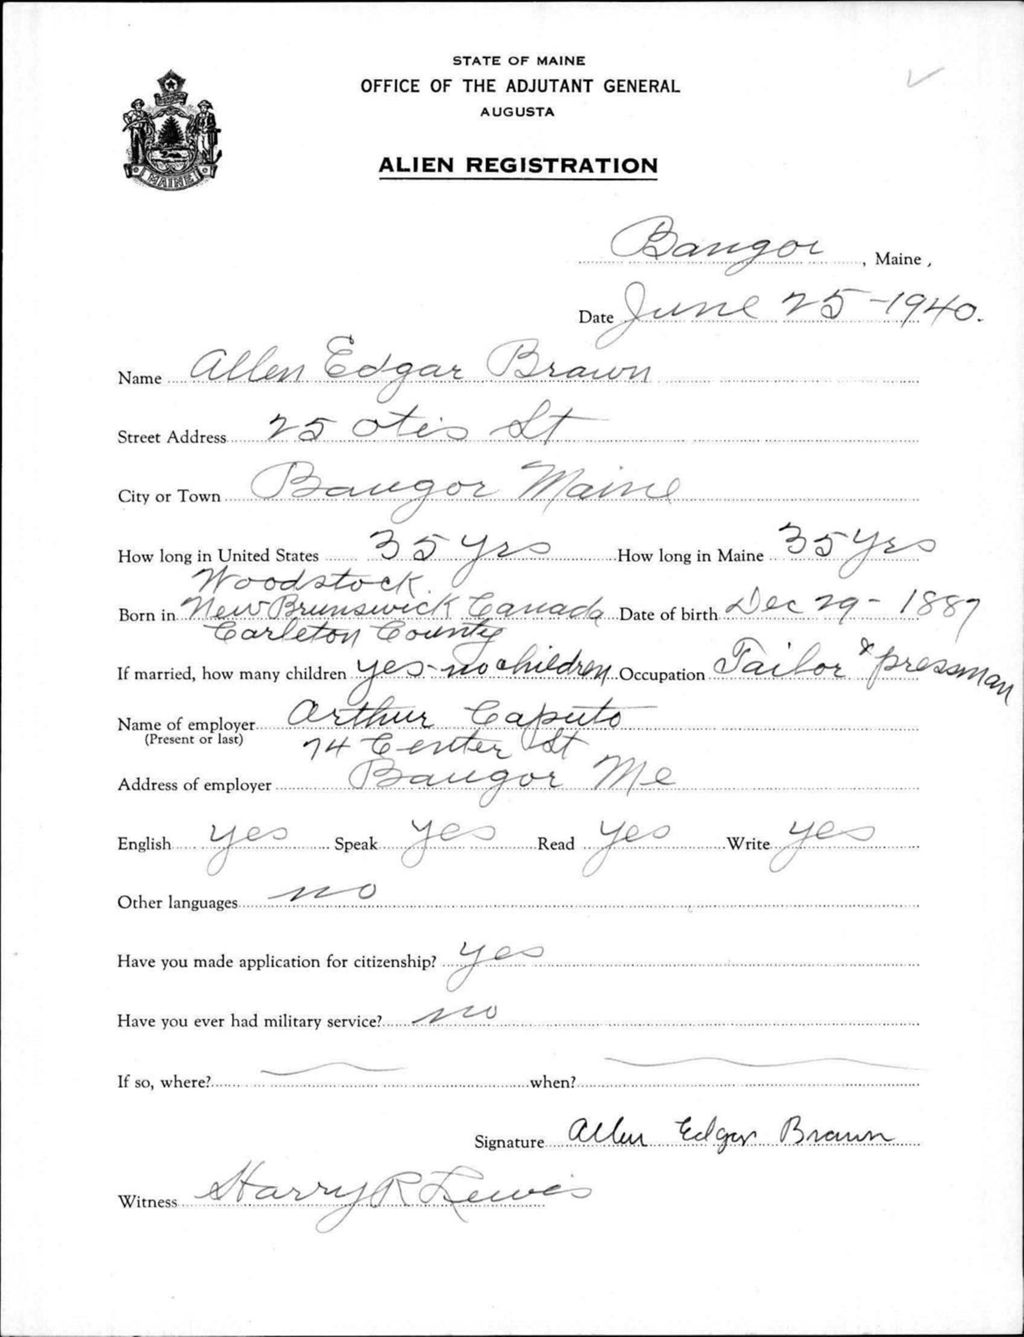 STATE OF MAINE
OFFICE OF THE ADJUTANT GENERAL
AUGUSTA
ALIEN REGISTRATION
MAINE
Bangor, Maine,
Date June 25-1940.
Name Allen Edgar Brawn
Street Address 25 Otis St
City or Town Bangor Maine
How long in United States 35 yrs How long in Maine 35 yrs
Woodstock
Born in New Brunswick Canada Date of birth Dec 29-1887
Carleton County
If married, how many children yes-no children Occupation Tailor & pressman
Name of employer Arthur Caputo
(Present or last)
74 Center St
Address of employer Bangor Me
English yes Speak yes Read yes Write yes
Other languages no
Have you made application for citizenship? yes
Have you ever had military service? no
If so, where? when?
Signature Allen Edgar Brawn
Witness Harry R Lewis